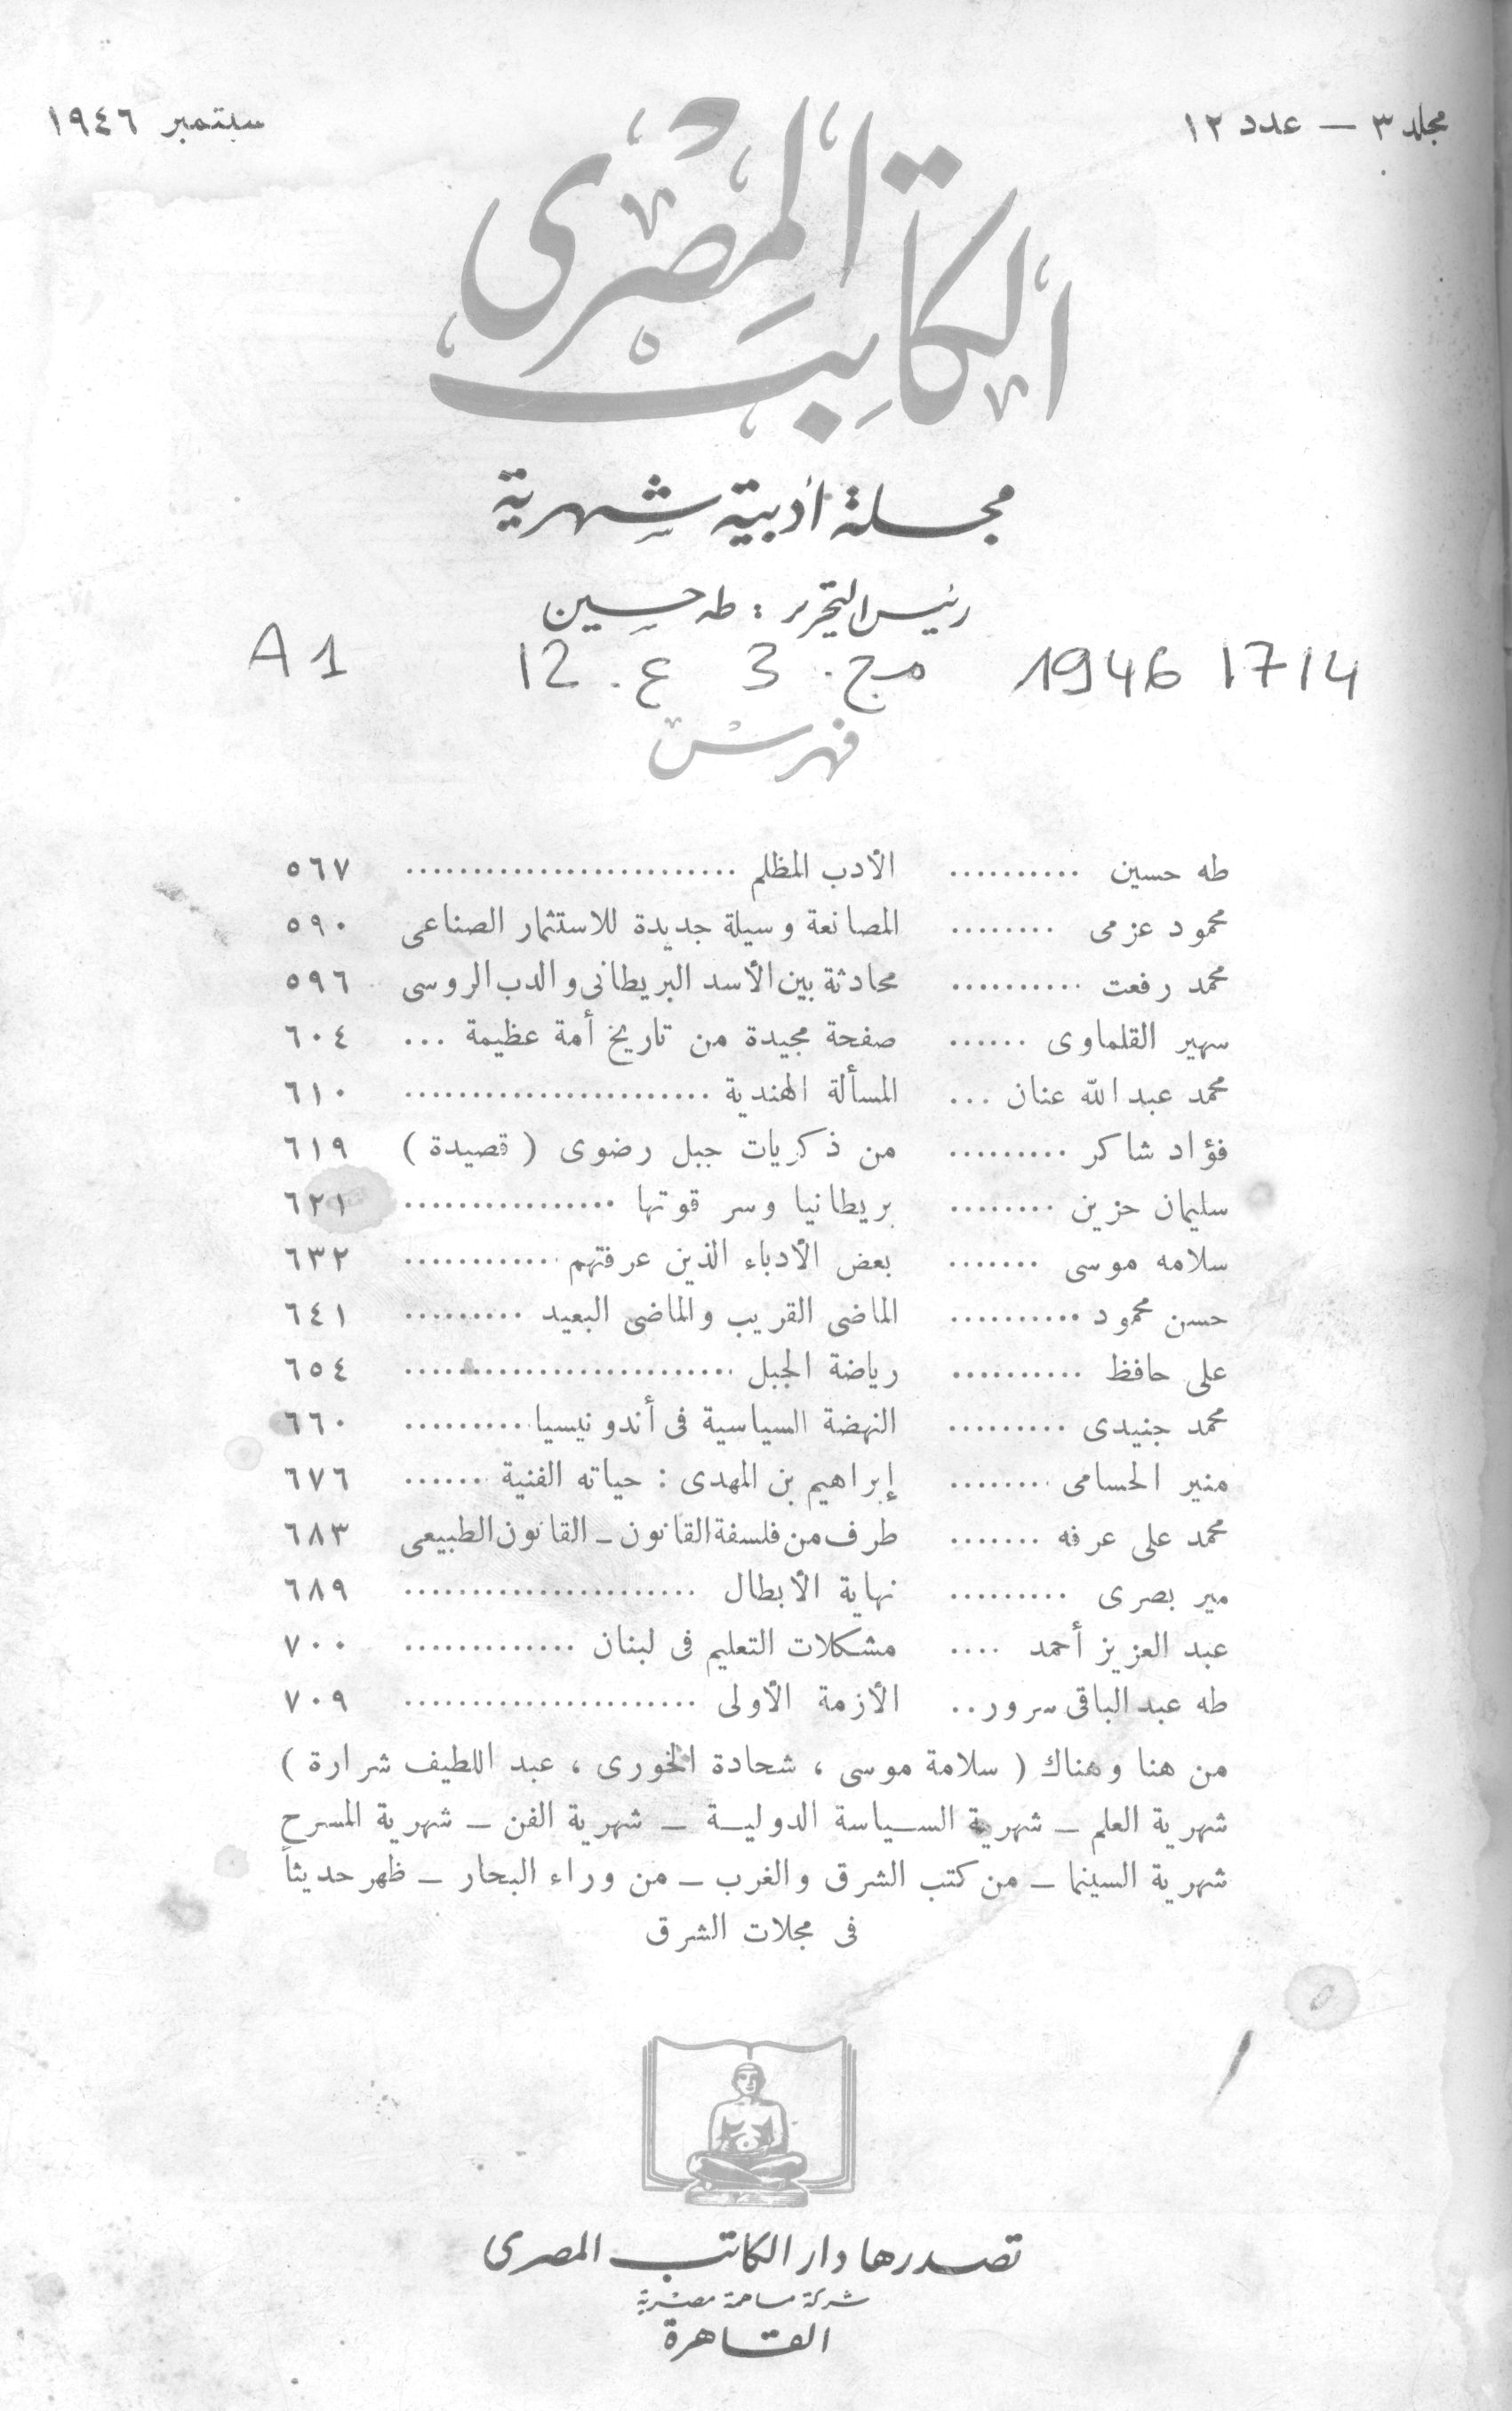 مجلد ٣ — عدد ١٢
سبتمبر ١٩٤٦
الكاتب المصرى
مجلة أدبية شهرية
رئيس التحرير : طه حسين
1946 1714 مج. 3 ع. 12 A1
فهرس
طه حسين .......... الأدب المظلم .......................... ٥٦٧
محمود عزمى ........ المصانعة وسيلة جديدة للاستثمار الصناعى ٥٩٠
محمد رفعت .......... محادثة بين الأسد البريطانى والدب الروسى ٥٩٦
سهير القلماوى ...... صفحة مجيدة من تاريخ أمة عظيمة ... ٦٠٤
محمد عبد الله عنان ... المسألة الهندية ........................ ٦١٠
فؤاد شاكر ......... من ذكريات جبل رضوى ( قصيدة ) ٦١٩
سليمان حزين ........ بريطانيا وسر قوتها ................ ٦٢١
سلامه موسى ....... بعض الأدباء الذين عرفتهم ............ ٦٣٢
حسن محمود .......... الماضى القريب والماضى البعيد ......... ٦٤١
على حافظ .......... رياضة الجبل .......................... ٦٥٤
محمد جنيدى ......... النهضة السياسية فى أندونيسيا .......... ٦٦٠
منير الحسامى ........ إبراهيم بن المهدى : حياته الفنية ....... ٦٧٦
محمد على عرفه ....... طرف من فلسفة القانون ــ القانون الطبيعى ٦٨٣
مير بصرى ......... نهاية الأبطال ...................... ٦٨٩
عبد العزيز أحمد .... مشكلات التعليم فى لبنان ............. ٧٠٠
طه عبد الباقى سرور .. الأزمة الأولى ...................... ٧٠٩
من هنا وهناك ( سلامة موسى ، شحادة الخورى ، عبد اللطيف شرارة )
شهرية العلم ــ شهرية السياسة الدولية ــ شهرية الفن ــ شهرية المسرح
شهرية السينما ــ من كتب الشرق والغرب ــ من وراء البحار ــ ظهر حديثاً
فى مجلات الشرق
تصدرها دار الكاتب المصرى
شركة مساهمة مصرية
القاهرة